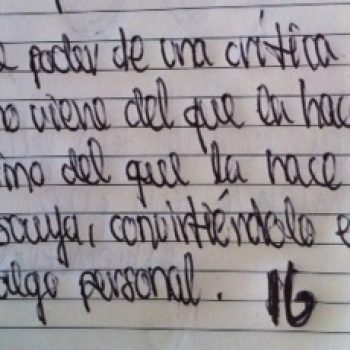 poder de una crítica
no viene del que la hace
sino del que la hace
suya, convirtiéndolo e
algo personal. 16